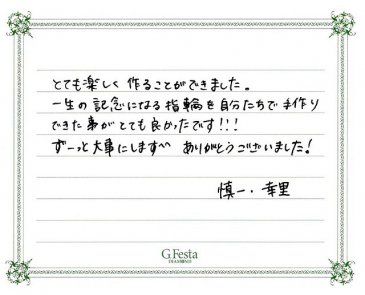 とても楽しく作ることができました。
一生の記念になる指輪を自分たちで手作り
できた事がとても良かったです!!!
ずーっと大事にします〜 ありがとうございました!
慎一・幸里
G.Festa
DIAMOND